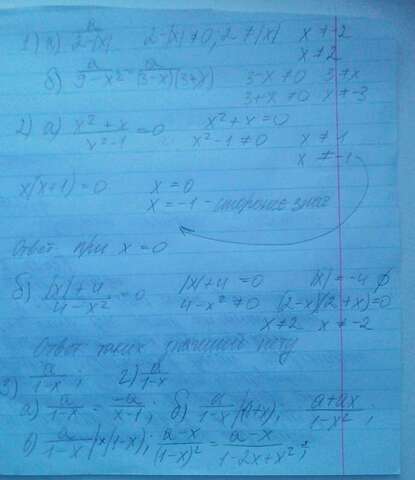 1) а) a/(2-|x|) 2-|x| ≠ 0, 2 ≠ |x| x ≠ -2
x ≠ 2
б) a/(9-x²) = a/((3-x)(3+x)) 3-x ≠ 0 3 ≠ x
3+x ≠ 0 x ≠ -3
2) а) (x²+x)/(x²-1) = 0 x²+x = 0
x²-1 ≠ 0 x ≠ 1
x ≠ -1
x(x+1) = 0 x = 0
x = -1 -
Ответ при x = 0
б) (|x|+4)/(4-x²) = 0 |x|+4 = 0 |x| = -4 ∅
4-x² ≠ 0 (2-x)(2+x) = 0
x ≠ 2 x ≠ -2
Ответ таких значений нету
3) a/(1-x); 2) a/(1-x)
а) a/(1-x) = -a/(x-1); б) a/(1-x) |(1+x); (a+ax)/(1-x²);
в) a/(1-x) |x(1-x); (a-x)/(1-x)² = (a-x)/(1-2x+x²);